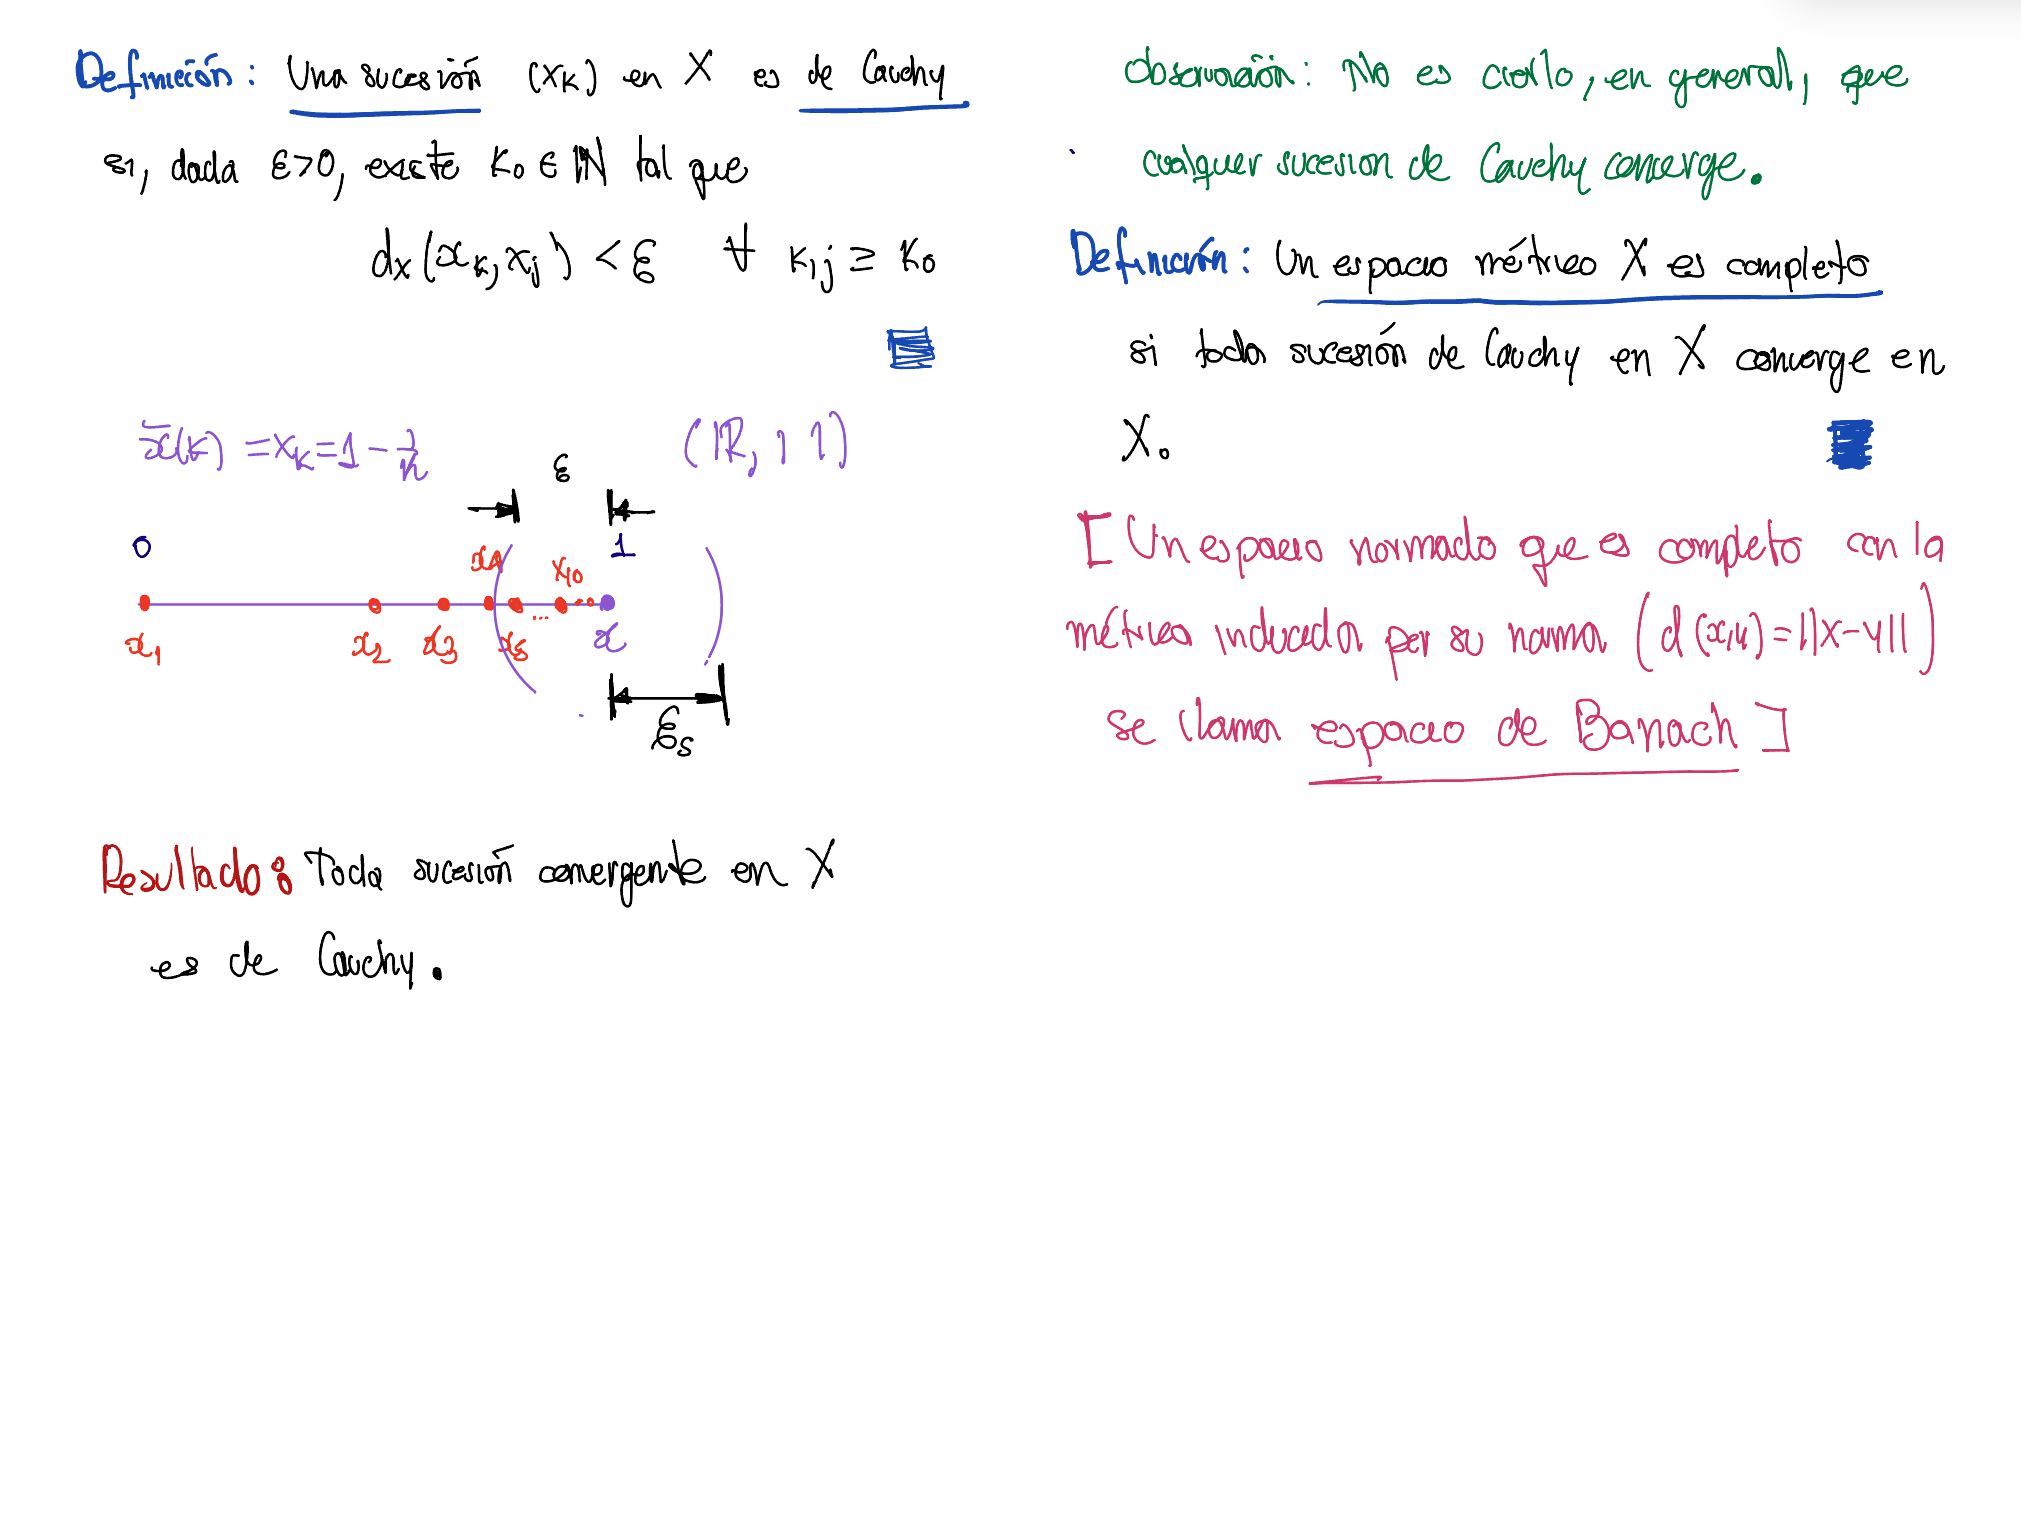 Definición: Una sucesión (x_k) en X es de Cauchy
si, dada ε>0, existe k₀ ∈ ℕ tal que
d_x(x_k, x_j) < ε ∀ k, j ≥ k₀
x̄(k) = x_k = 1 - 1/k (ℝ, | |)
ε
0 1
x₄ x₁₀
x₁ x₂ x₃ x₅ ... x
ε₅
Resultado: Toda sucesión convergente en X
es de Cauchy.
Observación: No es cierto, en general, que
cualquier sucesion de Cauchy converge.
Definición: Un espacio métrico X es completo
si toda sucesión de Cauchy en X converge en
X.
[Un espacio normado que es completo con la
métrica inducida por su norma (d(x,y)=||x-y||)
se llama espacio de Banach]